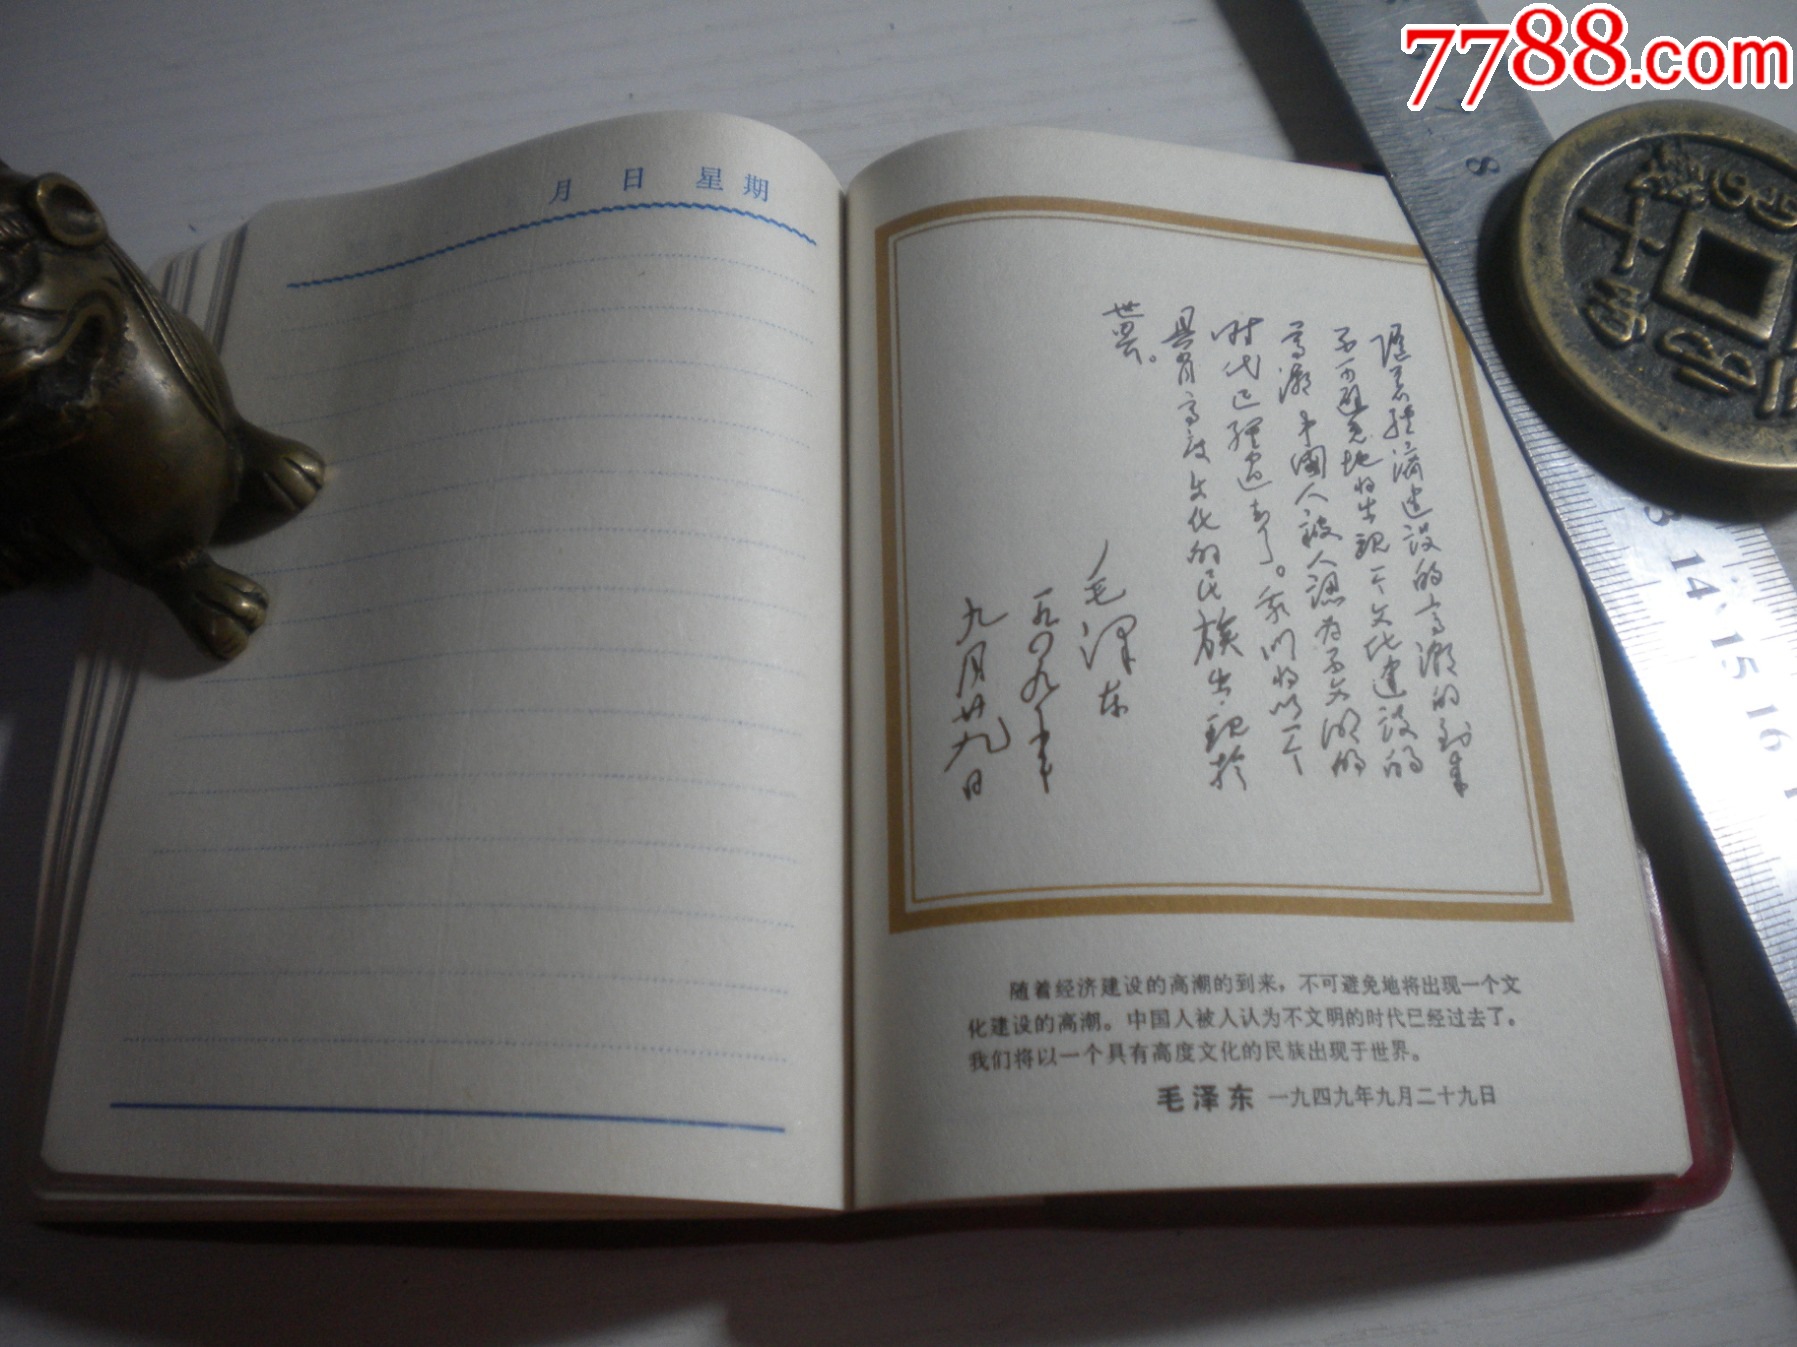 7788.com
月 日 星期
随着經濟建设的高潮的到来
不可避免地将出现一个文化建设的
高潮中國人被人認为不文明的
时代已經过去了。我们将以一个
具有高度文化的民族出现於
世界。
毛泽东
一九四九年
九月廿九日
随着经济建设的高潮的到来，不可避免地将出现一个文
化建设的高潮。中国人被人认为不文明的时代已经过去了。
我们将以一个具有高度文化的民族出现于世界。
毛泽东 一九四九年九月二十九日
8
13 14 15 16